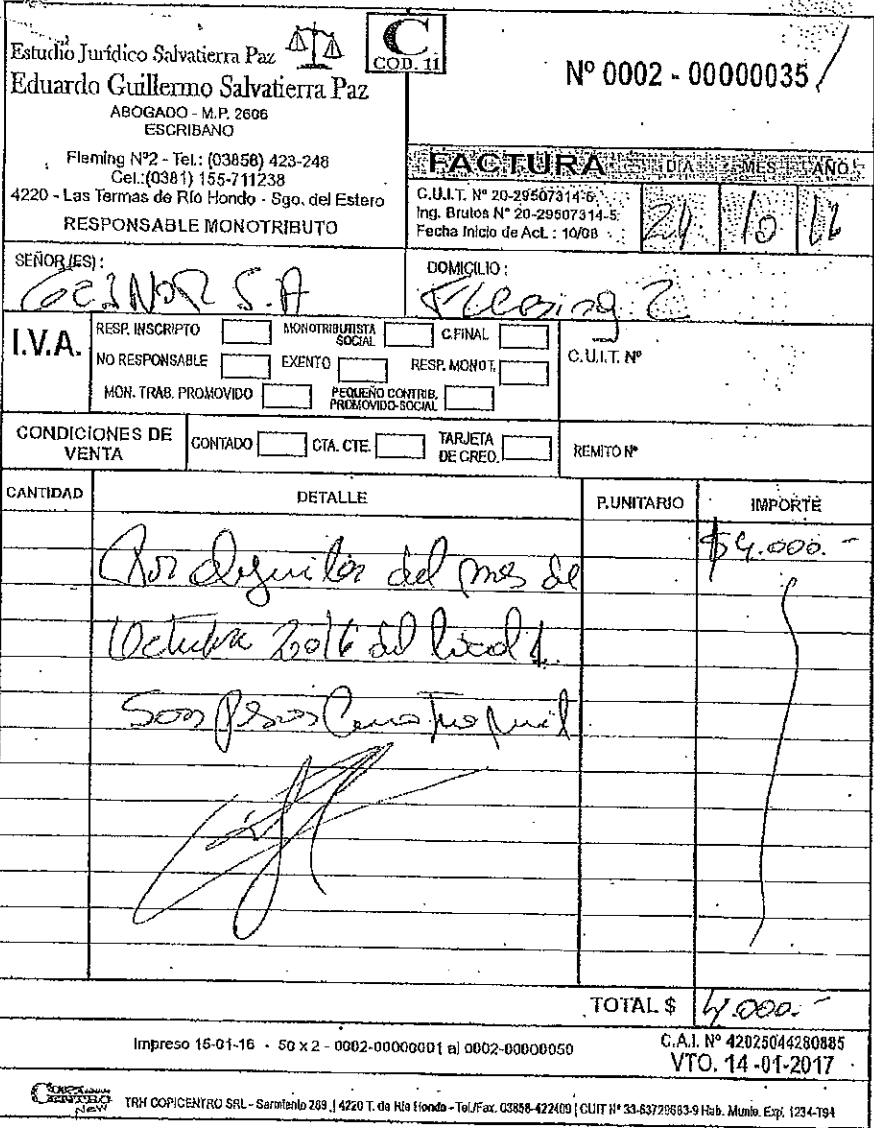 Estudio Jurídico Salvatierra Paz
Eduardo Guillermo Salvatierra Paz
ABOGADO - M.P. 2606
ESCRIBANO
Fleming Nº2 - Tel.: (03858) 423-248
Cel.:(0381) 155-711238
4220 - Las Termas de Río Hondo - Sgo. del Estero
RESPONSABLE MONOTRIBUTO
C
COD. 11
Nº 0002 - 00000035
FACTURA
DIA MES AÑO
C.U.I.T. Nº 20-29507314-5
Ing. Brutos Nº 20-29507314-5
Fecha Inicio de Act. : 10/08
24 10 16
SEÑOR(ES):
S.A
DOMICILIO:
Fleming 2
I.V.A.
RESP. INSCRIPTO
MONOTRIBUTISTA SOCIAL
C.FINAL
NO RESPONSABLE
EXENTO
RESP. MONOT.
MON. TRAB. PROMOVIDO
PEQUEÑO CONTRIB. PROMOVIDO-SOCIAL
C.U.I.T. Nº
CONDICIONES DE VENTA
CONTADO
CTA. CTE.
TARJETA DE CRED.
REMITO Nº
CANTIDAD
DETALLE
P.UNITARIO
IMPORTE
Por alquiler del mes de
$4.000.-
Octubre 2016 del local 1.
Son Pesos Cuatro mil
TOTAL $
4.000.-
Impreso 15-01-16 - 50 x 2 - 0002-00000001 al 0002-00000050
C.A.I. Nº 42025044280885
VTO. 14-01-2017
TRH COPICENTRO SRL - Sarmiento 269 | 4220 T. de Río Hondo - Tel./Fax. 03858-422409 | CUIT Nº 33-63729663-9 Hab. Munic. Exp. 1234-T94